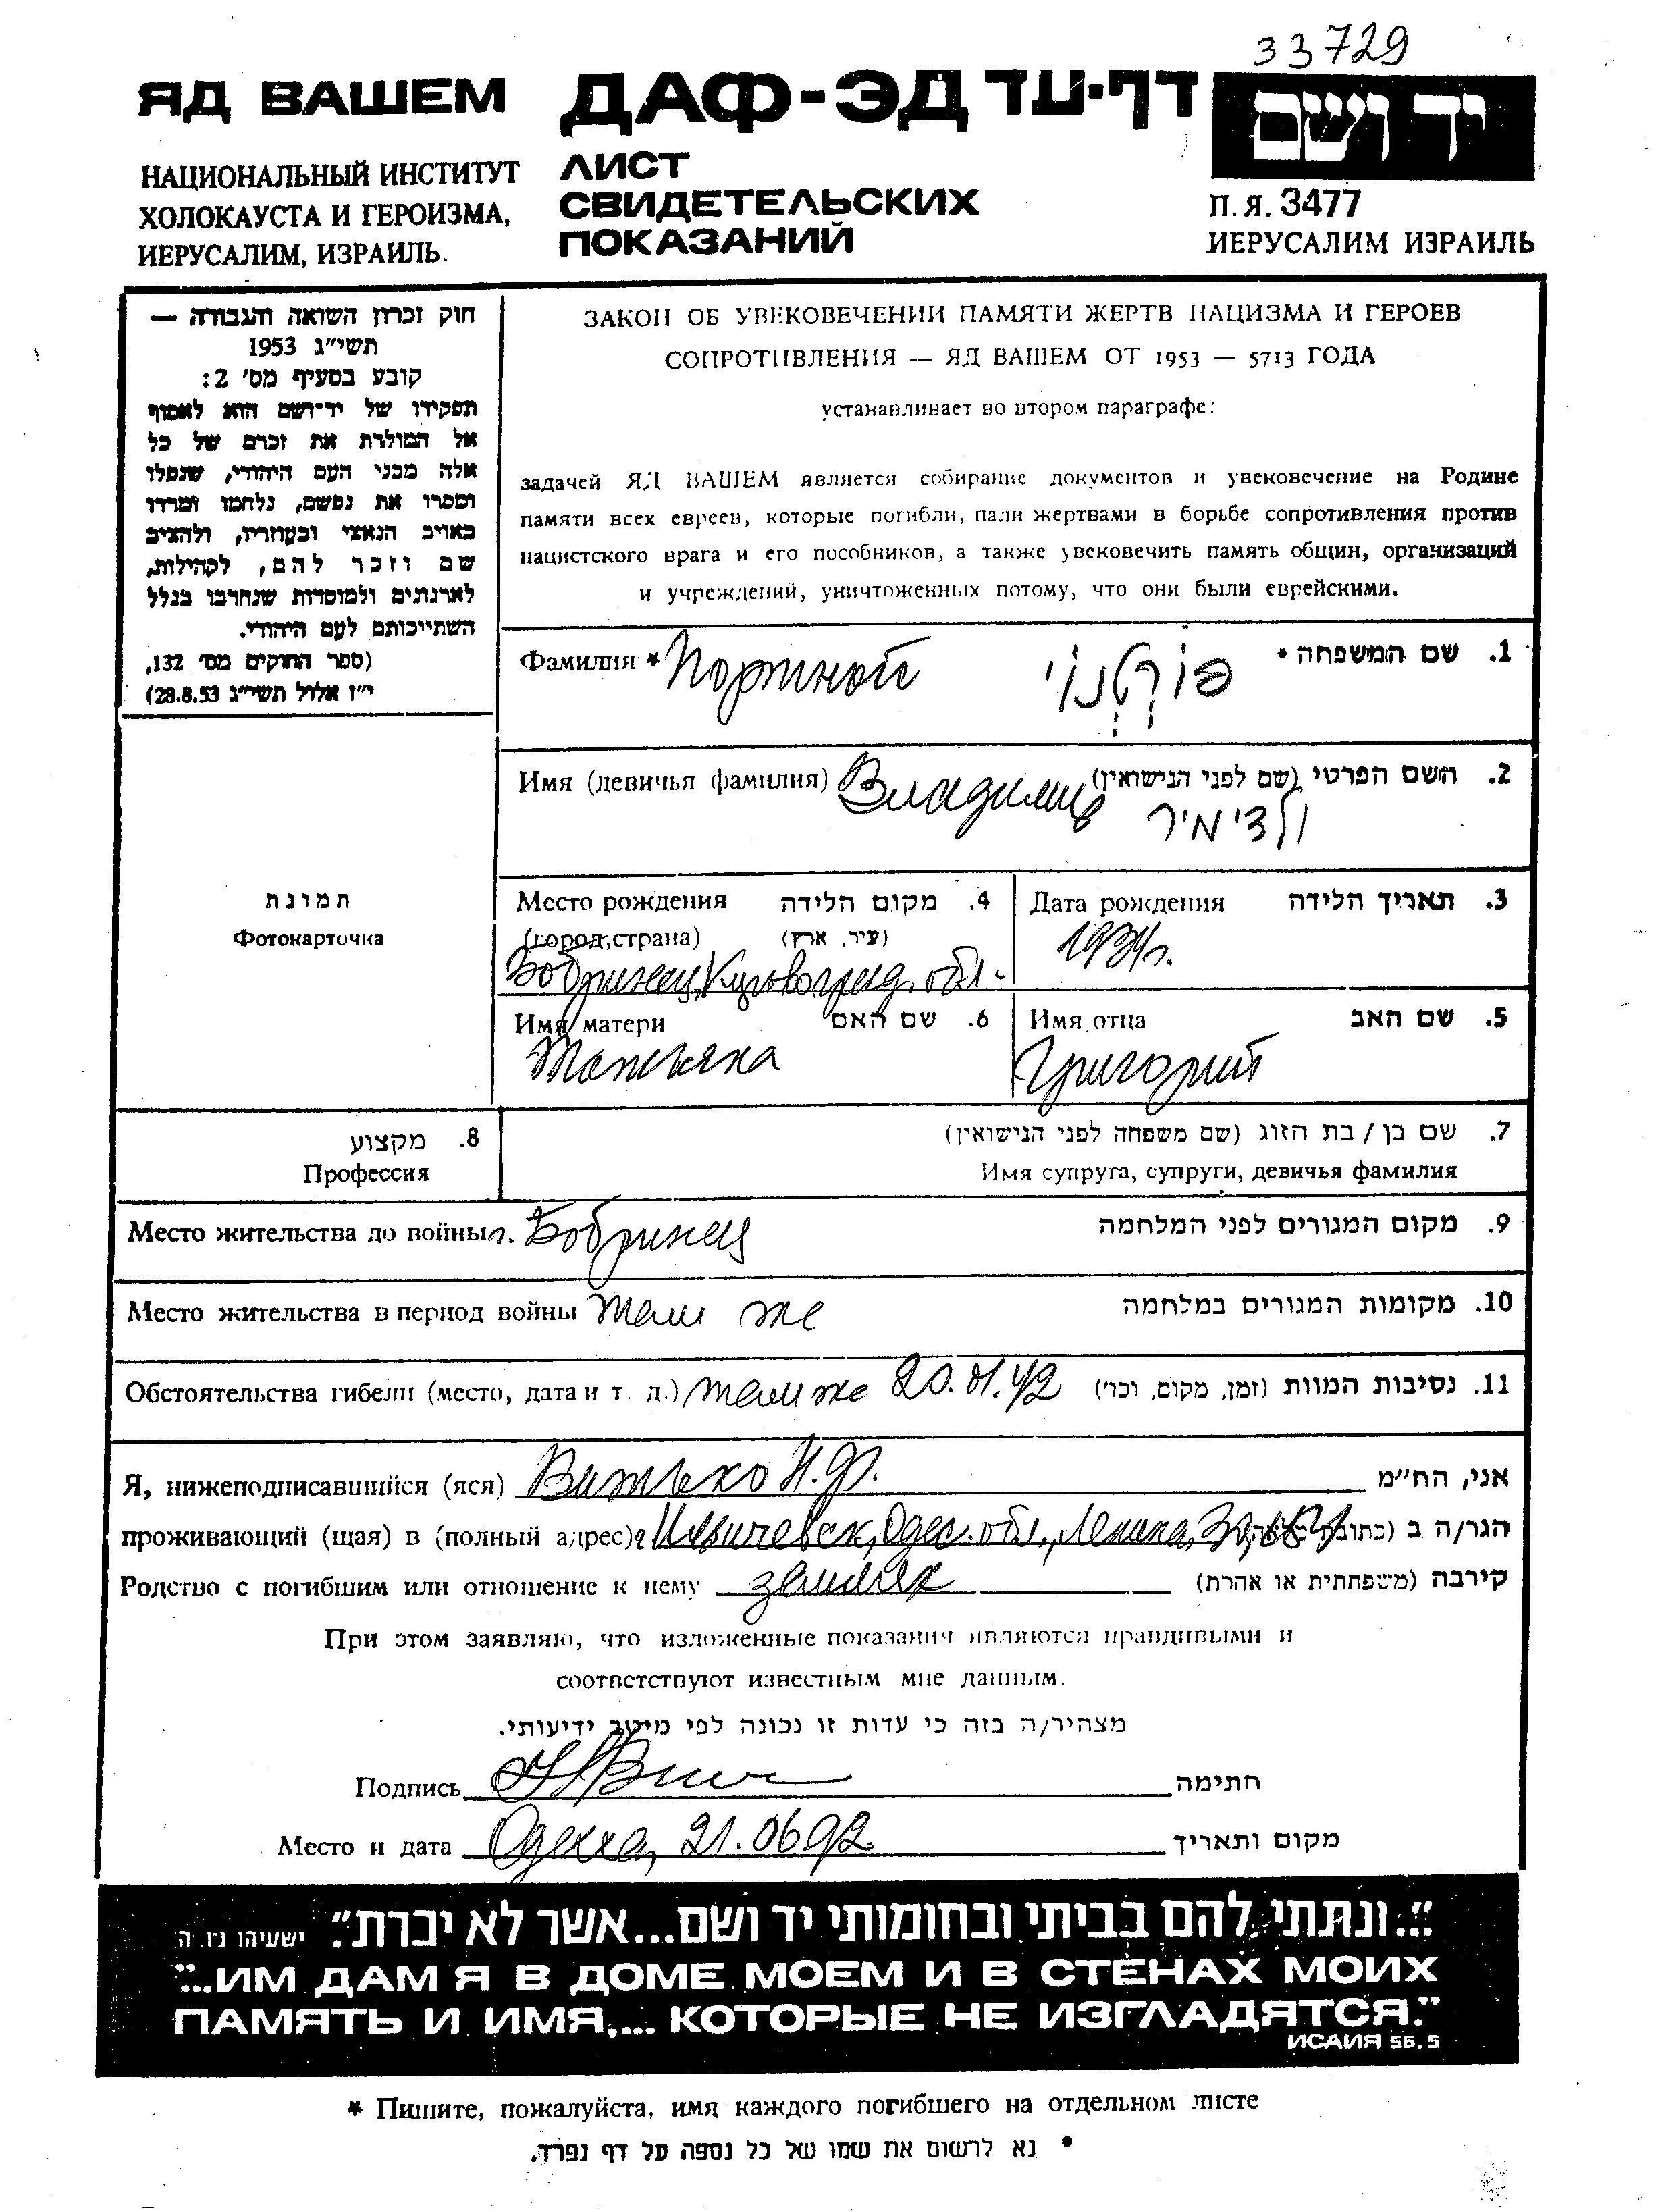 33729
ЯД ВАШЕМ
ДАФ-ЭД דף-עד
יד ושם
НАЦИОНАЛЬНЫЙ ИНСТИТУТ
ХОЛОКАУСТА И ГЕРОИЗМА,
ИЕРУСАЛИМ, ИЗРАИЛЬ.
ЛИСТ
СВИДЕТЕЛЬСКИХ
ПОКАЗАНИЙ
П. Я. 3477
ИЕРУСАЛИМ ИЗРАИЛЬ
חוק זכרון השואה והגבורה —
תשי״ג 1953
קובע בסעיף מס׳ 2:
תפקידו של יד־ושם הוא לאסוף
אל המולדת את זכרם של כל
אלה מבני העם היהודי, שנפלו
ומסרו את נפשם, נלחמו ומרדו
באויב הנאצי ובעוזריו, ולהציב
שם וזכר להם, לקהילות,
לארגונים ולמוסדות שנחרבו בגלל
השתייכותם לעם היהודי.
(ספר החוקים מס׳ 132,
י״ז אלול תשי״ג 28.8.53)
ЗАКОН ОБ УВЕКОВЕЧЕНИИ ПАМЯТИ ЖЕРТВ НАЦИЗМА И ГЕРОЕВ
СОПРОТИВЛЕНИЯ — ЯД ВАШЕМ ОТ 1953 — 5713 ГОДА
устанавливает во втором параграфе:
задачей ЯД ВАШЕМ является собирание документов и увековечение на Родине
памяти всех евреев, которые погибли, пали жертвами в борьбе сопротивления против
нацистского врага и его пособников, а также увековечить память общин, организаций
и учреждений, уничтоженных потому, что они были еврейскими.
Фамилия * Портной פורטנוי 1. שם המשפחה *
Имя (девичья фамилия) Владимир 2. השם הפרטי (שם לפני הנישואין)
ולדימיר
תמונת
Фотокарточка
Место рождения 4. מקום הלידה
(город,страна) (עיר, ארץ)
Бобринец, Кировоград. обл.
Дата рождения 3. תאריך הלידה
1934г.
Имя матери 6. שם האם
Татьяна
Имя отца 5. שם האב
Григорий
8. מקצוע
Профессия
7. שם בן / בת הזוג (שם משפחה לפני הנישואין)
Имя супруга, супруги, девичья фамилия
Место жительства до войны г. Бобринец 9. מקום המגורים לפני המלחמה
Место жительства в период войны там же 10. מקומות המגורים במלחמה
Обстоятельства гибели (место, дата и т. д.) там же 20.01.42 11. נסיבות המוות (זמן, מקום, וכו׳)
Я, нижеподписавшийся (яся) Витько Н.Ф. אני, הח״מ
проживающий (щая) в (полный адрес) г Ильичевск, Одес. обл., Ленина, הגר/ה ב
Родство с погибшим или отношение к нему земляк קירבה (משפחתית או אחרת)
При этом заявляю, что изложенные показания являются правдивыми и
соответствуют известным мне данным.
מצהיר/ה בזה כי עדות זו נכונה לפי מיטב ידיעותי.
Подпись חתימה
Место и дата Одесса, 21.06 92. מקום ותאריך
״...ונתתי להם בביתי ובחומותי יד ושם...אשר לא יכרת״. ישעיהו נ״ו. ה
"...ИМ ДАМ Я В ДОМЕ МОЕМ И В СТЕНАХ МОИХ
ПАМЯТЬ И ИМЯ,... КОТОРЫЕ НЕ ИЗГЛАДЯТСЯ."
ИСАИЯ 56. 5
* Пишите, пожалуйста, имя каждого погибшего на отдельном листе
* נא לרשום את שמו של כל נספה על דף נפרד.